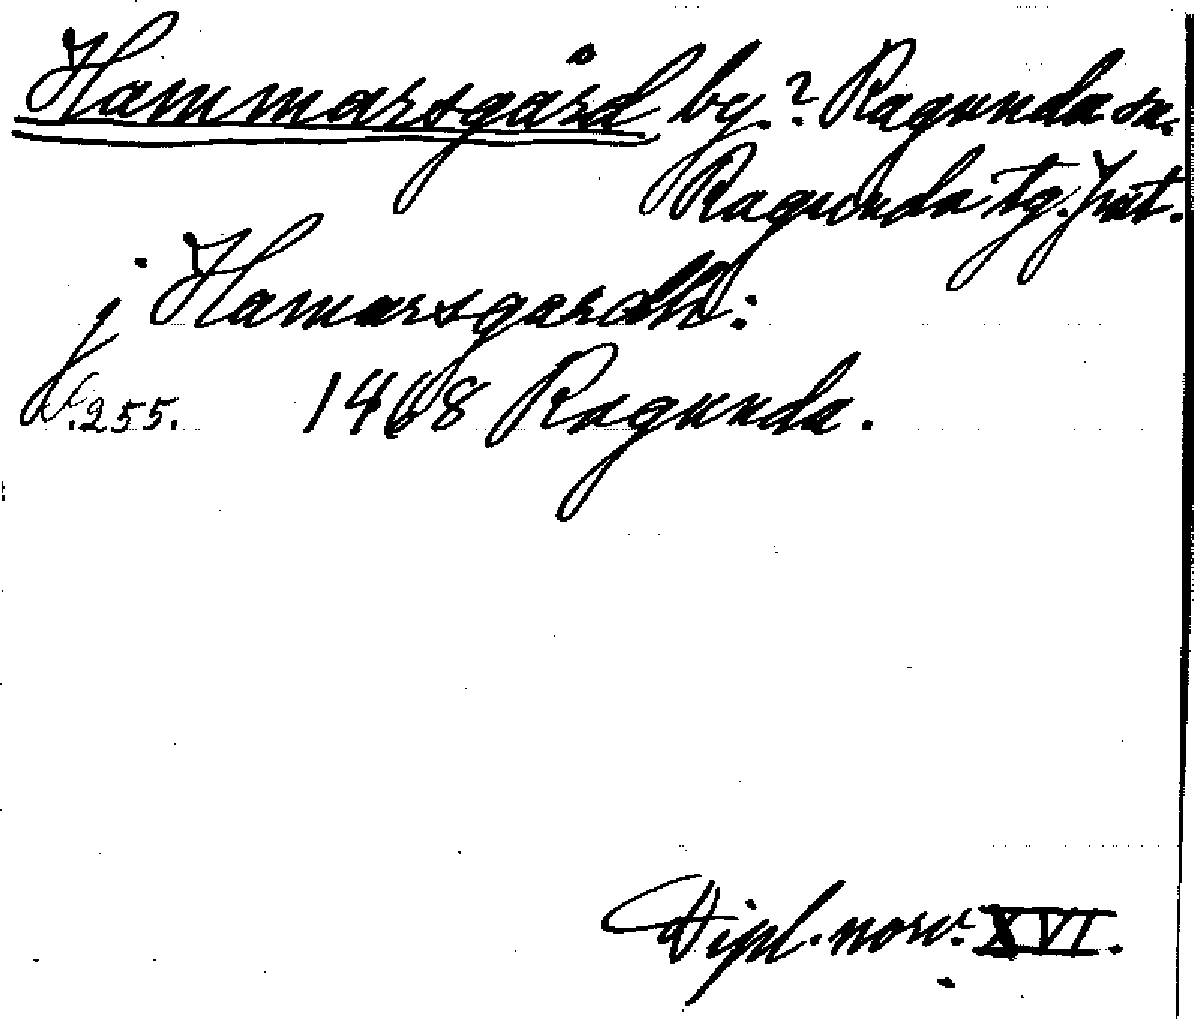 Hammarsgård by.? Ragunda sn.
Ragunda tg. Jmt.
j Hamarsgardh:
s. 255. 1468 Ragunda.
Dipl. norv. XVI.